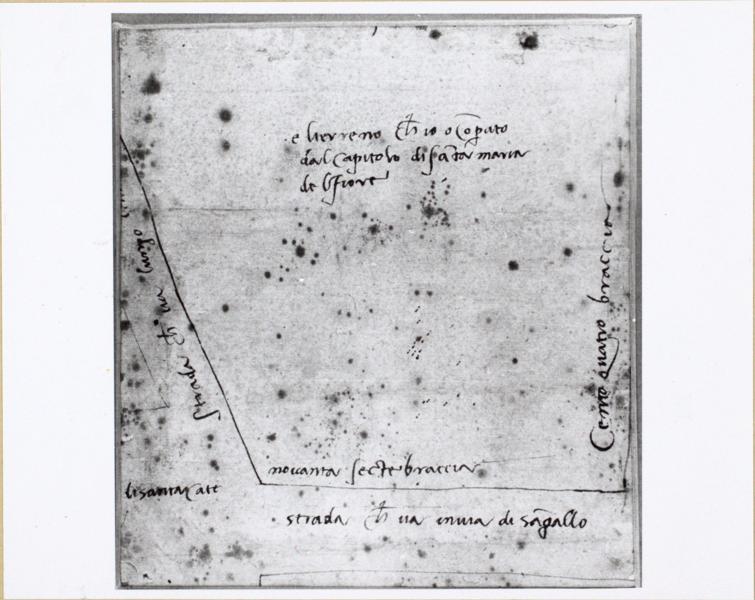 e lterreno ch io o co̅pato
dal capitolo di santa maria
de l fiore
strada ch va lungo
Cento quatro braccia
novanta secte braccia
di santa Cate
strada ch va invia di sa̅gallo